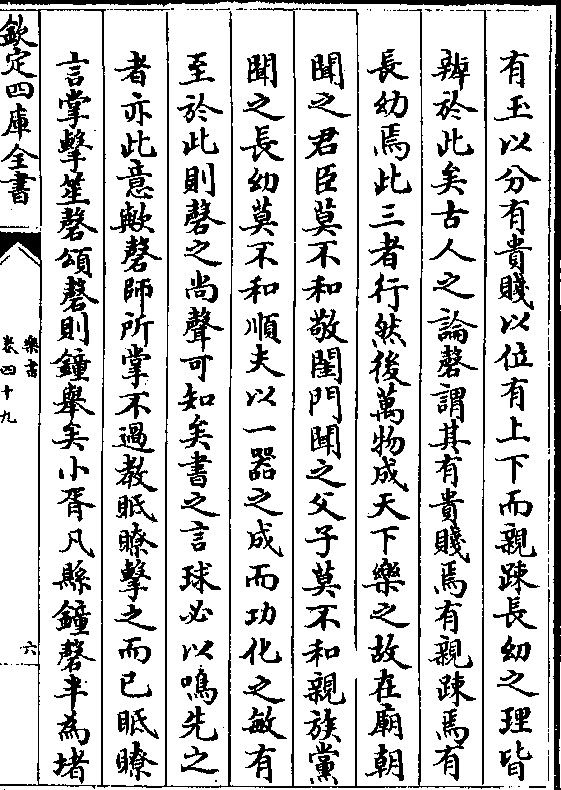 有玉以分有貴賤以位有上下而親踈長幼之理皆
辨於此矣古人之論磬謂其有貴賤焉有親踈焉有
長幼焉此三者行然後萬物成天下樂之故在廟朝
聞之君臣莫不和敬閨門聞之父子莫不和親族黨
聞之長幼莫不和順夫以一器之成而功化之敏有
至於此則磬之尚聲可知矣書之言球必以鳴先之
者亦此意歟磬師所掌不過教眡瞭擊之而已眡瞭
言掌擊笙磬頌磬則鐘舉矣小胥凡縣鐘磬半為堵
欽定四庫全書
樂書
卷四十九
六